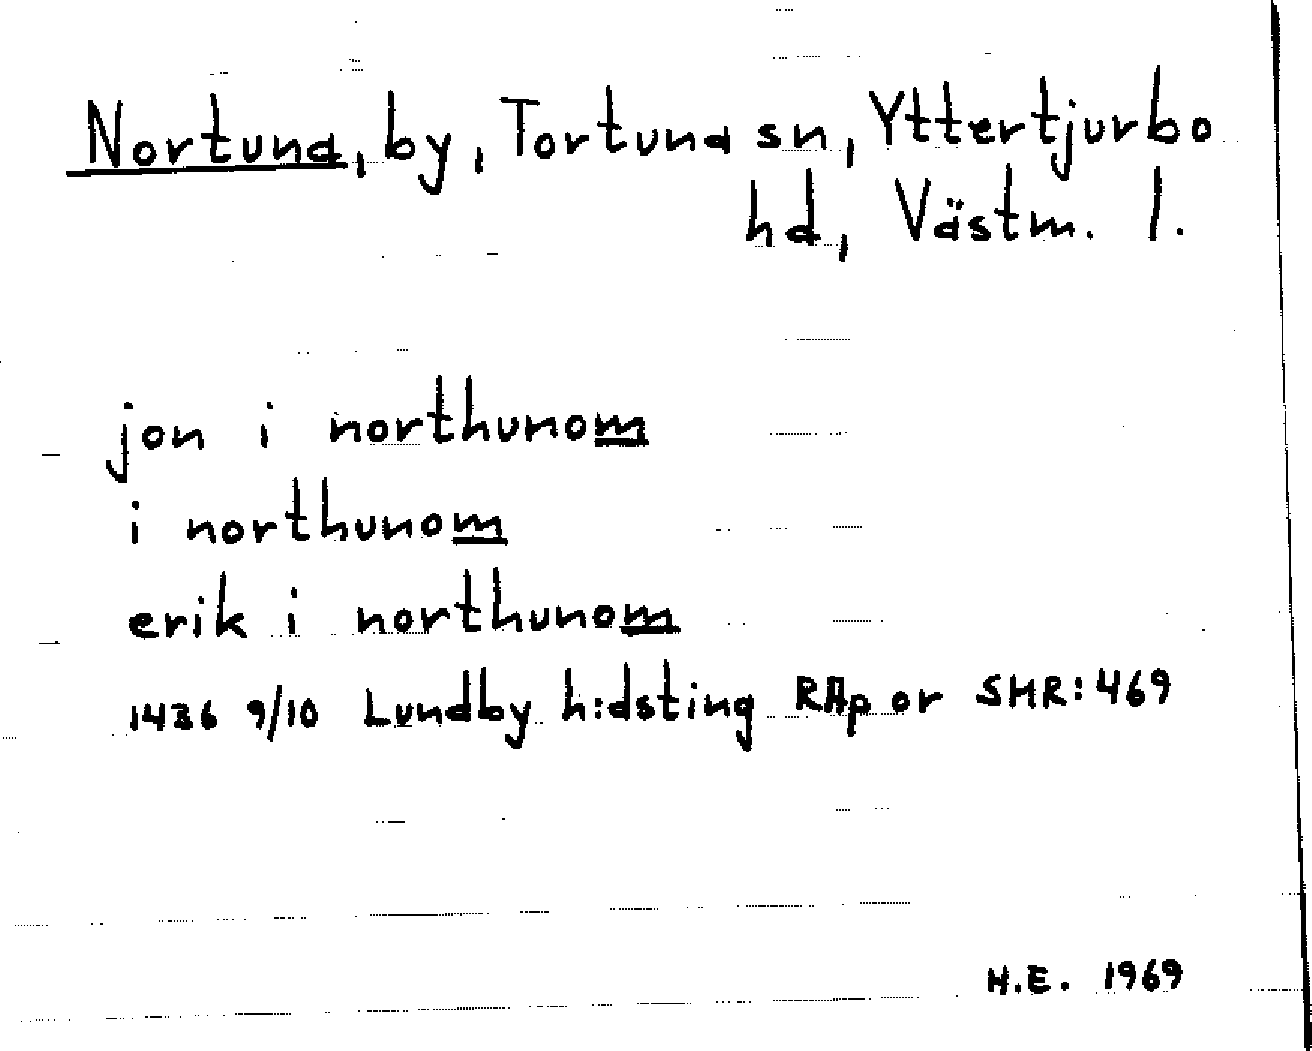 Nortuna, by, Tortuna sn, Yttertjurbo
hd, Västm. l.
jon i northunom
i northunom
erik i northunom
1436 9/10 Lundby h:dsting RAp or SMR:469
H.E. 1969